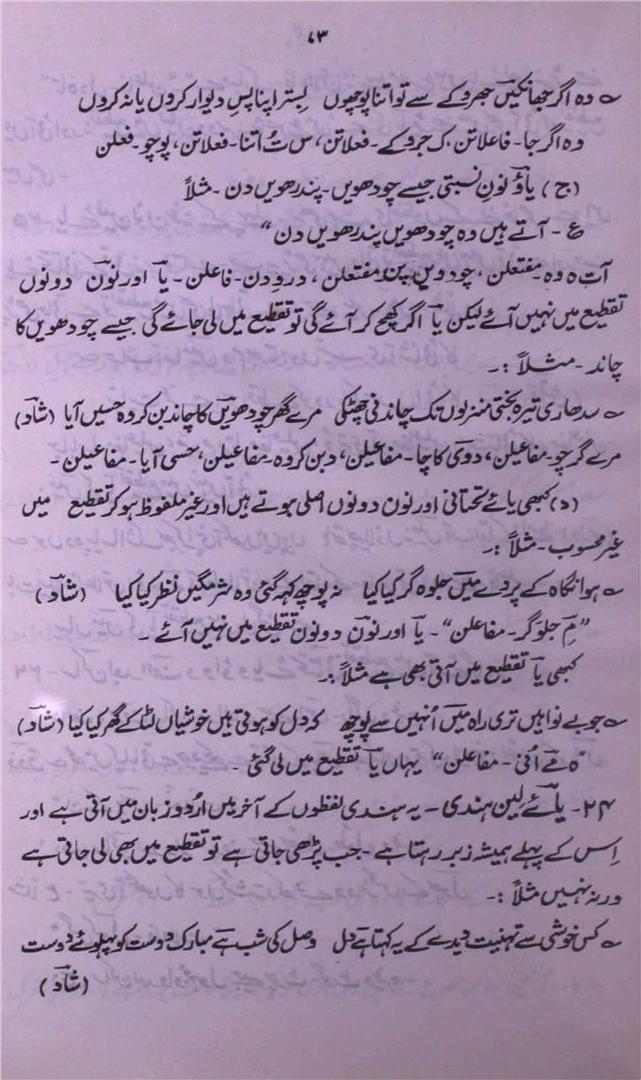 ۷۳
؎ وہ اگر جھانکیں جھروکے سے تو اتنا پوچھوں بستر اپنا پسِ دیوار کروں یا نہ کروں
وہ اگر جا۔ فاعلاتن، ک جروکے۔ فعلاتن، س تُ اتنا۔ فعلاتن، پوچو۔ فعلن
(ج) یاؤ نونِ نسبتی جیسے چودھویں۔ پندرھویں دن۔ مثلاً
ع۔ آتے ہیں وہ چودھویں پندرھویں دن"
آت ہ وہ۔ مفتعلن، چودویں پند مفتعلن، درودن۔ فاعلن۔ یا اور نون دونوں
تقطیع میں نہیں آئے لیکن یا اگر کھچ کر آئے گی تو تقطیع میں لی جائے گی جیسے چودھویں کا
چاند۔ مثلاً:۔
؎ سدھاری تیرہ بختی منزلوں تک چاندنی چھٹکی مرے گھر چودھویں کا چاند بن کر وہ حسیں آیا (شاد)
مرے گر چو۔ مفاعیلن، دوی کا چا۔ مفاعیلن، دبن کر وہ۔ مفاعیلن، حسی آیا۔ مفاعیلن۔
(د) کبھی یائے تحتانی اور نون دونوں اصلی ہوتے ہیں اور غیر ملفوظ ہو کر تقطیع میں
غیر محسوب۔ مثلاً:۔
؎ ہوا نگاہ کے پردے میں جلوہ گر کیا کیا نہ پوچھ کہہ گئی وہ شرمگیں نظر کیا کیا (شاد)
"مِ جلوَ گر۔ مفاعلن"۔ یا اور نون دونوں تقطیع میں نہیں آئے۔
کبھی یا تقطیع میں آتی بھی ہے مثلاً:۔
؎ جو بے نوا ہیں تری راہ میں اُنہیں سے پوچھ کہ دل کو ہوتی ہیں خوشیاں لٹا کے گھر کیا کیا (شاد)
"ہ مے اُنی۔ مفاعلن" یہاں یا تقطیع میں لی گئی۔
۲۴۔ یائے لین ہندی۔ یہ ہندی لفظوں کے آخر میں اردو زبان میں آتی ہے اور
اِس کے پہلے ہمیشہ زبر رہتا ہے۔ جب پڑھی جاتی ہے تو تقطیع میں بھی لی جاتی ہے
ورنہ نہیں مثلاً:۔
؎ کس خوشی سے تہنیت دیدے کے یہ کہتا ہے دل وصل کی شب ہے مبارک دوست کو پہلوئے دوست
(شاد)